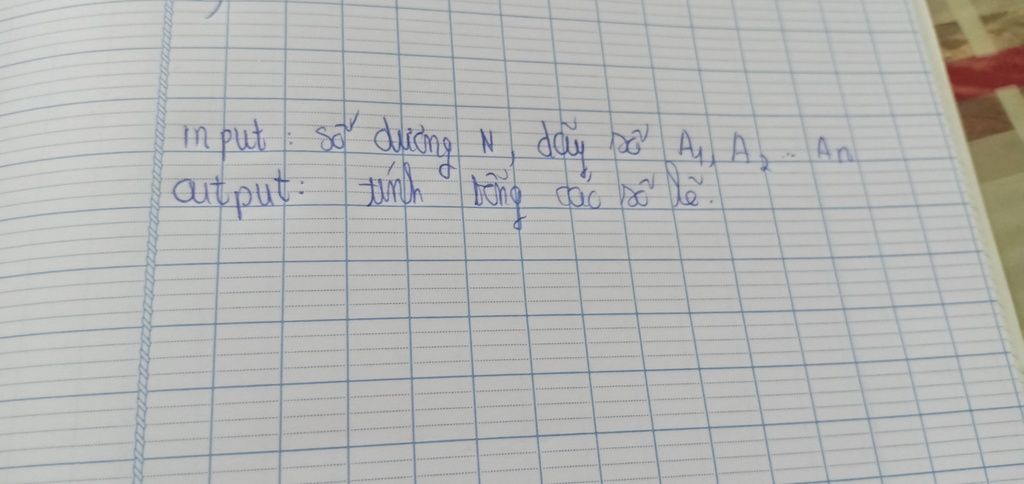 input: số dương N, dãy số A1, A2 .. An
output: tính tổng các số lẽ.